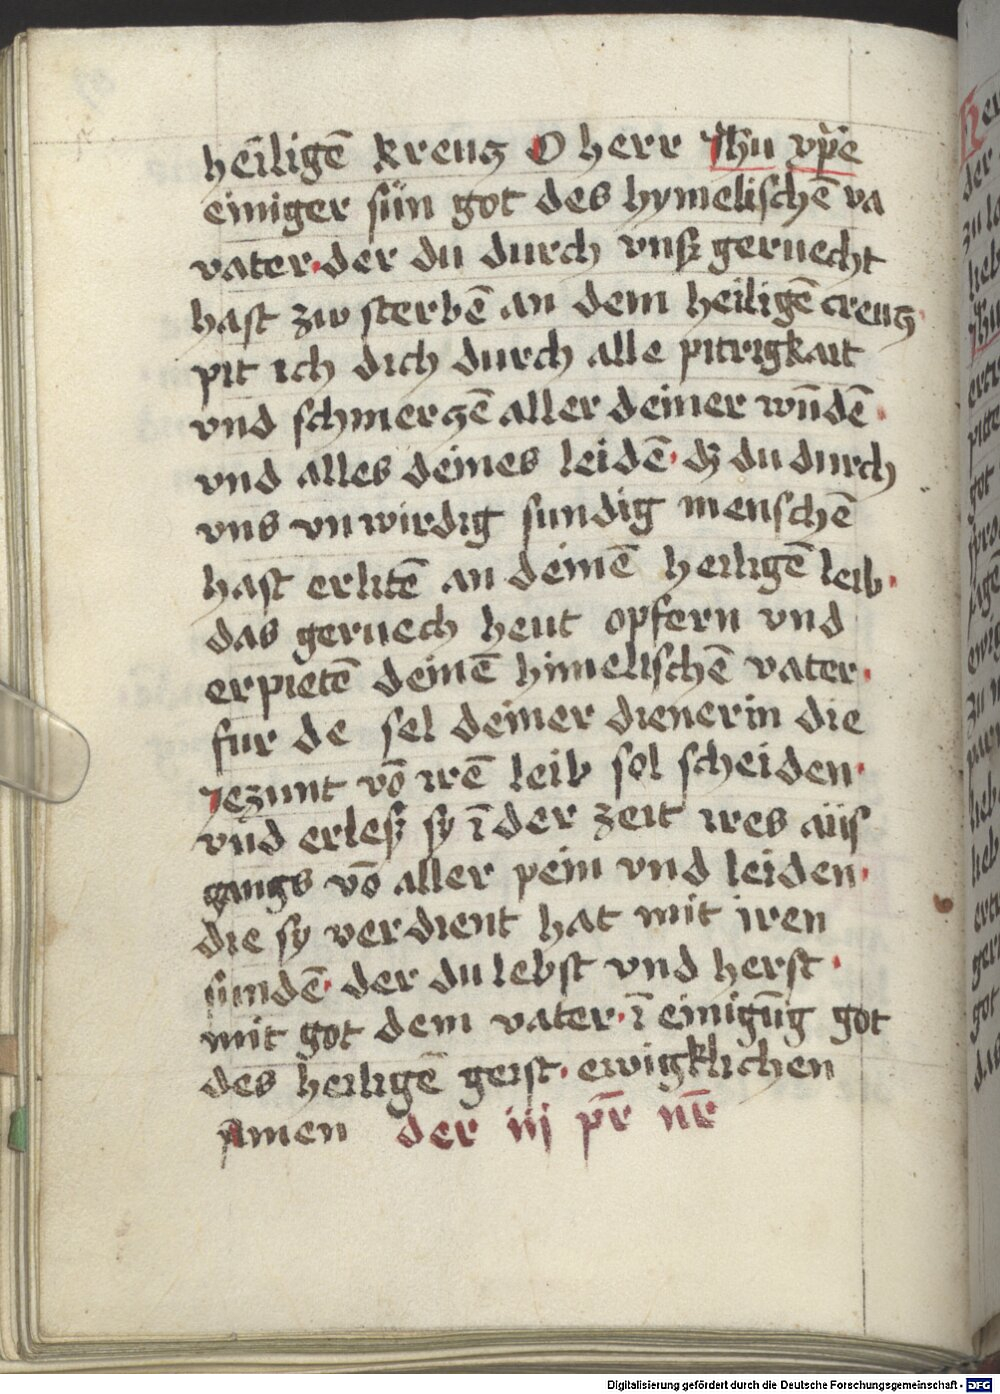 heiligē kreuꜩ O herr Jhu xp̄e
einiger sün got des hymelischē va
vater · der du durch vnſz geruecht
hast zw sterbē an dem heiligē creuꜩ ·
pit ich dich durch alle pitrigkait
vnd schmerꜩē aller deiner wūdē ·
vnd alles deines leidē · dꝫ du durch
vns vnwirdig sundig menschē
hast erlitē an deinē heiligē leib ·
das geruech heut opfern vnd
erpietē deinē himelischē vater ·
fur de sel deiner dienerin die
Jezunt vō irē leib sol scheiden ·
vnd erleſz sy ī der zeit ires aüs
gangs vō aller pein vnd leiden ·
die sy verdient hat mit iren
sundē · der du lebst vnd herst ·
mit got dem vater · ī einigūg got
des heiligē geist · ewigklichen
Amen der iij pr̄ nr̄
Digitalisierung gefördert durch die Deutsche Forschungsgemeinschaft - DFG